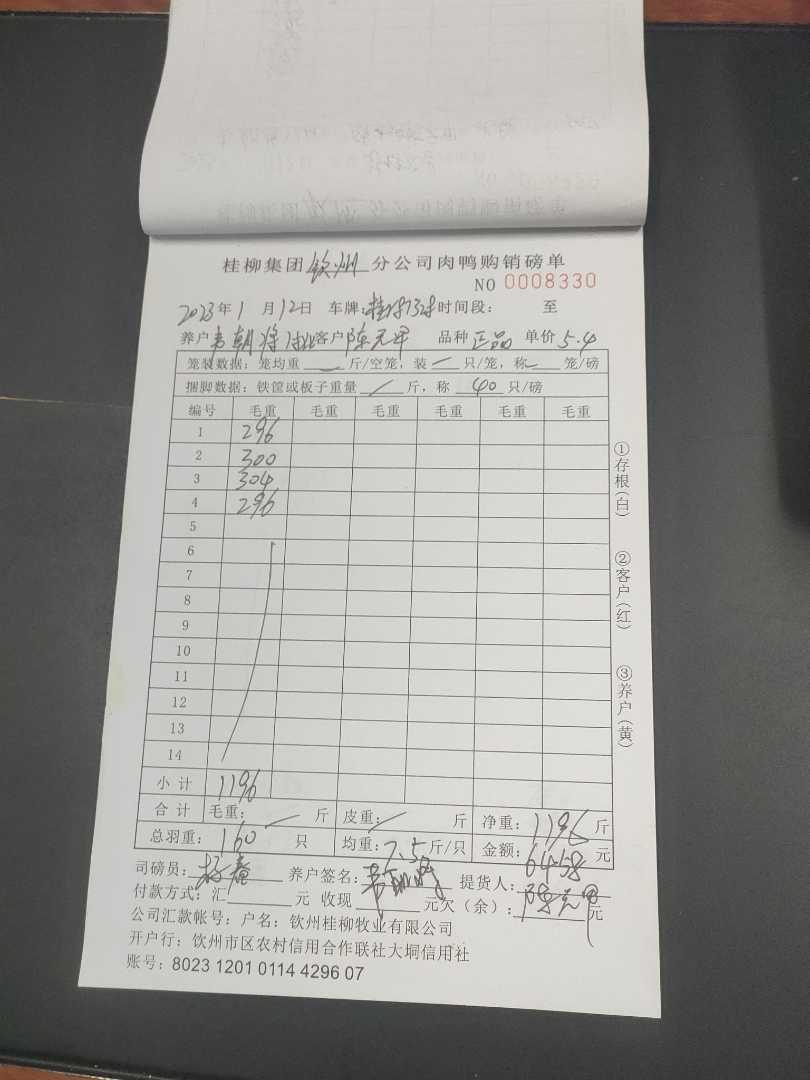 桂柳集团 钦州 分公司肉鸭购销磅单
NO 0008330
2023年1月12日 车牌: 时间段: 至
养户 韦朝 客户 陈元甲 品种 正品 单价 5.4
笼装数据: 笼均重 — 斤/空笼, 装 — 只/笼, 称 — 笼/磅
捆脚数据: 铁筐或板子重量 / 斤, 称 40 只/磅
编号 毛重 毛重 毛重 毛重 毛重 毛重
1 296
2 300
3 304
4 296
5
6
7
8
9
10
11
12
13
14
小计 1196
合计 毛重: — 斤 皮重: / 斤 净重: 1196 斤
总羽重: 160 只 均重: 7.5 斤/只 金额: 6458 元
司磅员: 养户签名: 韦朝 提货人: 陈元甲
付款方式: 汇 元 收现 元欠(余): 元
公司汇款帐号: 户名: 钦州桂柳牧业有限公司
开户行: 钦州市区农村信用合作联社大垌信用社
账号: 8023 1201 0114 4296 07
①存根(白)
②客户(红)
③养户(黄)